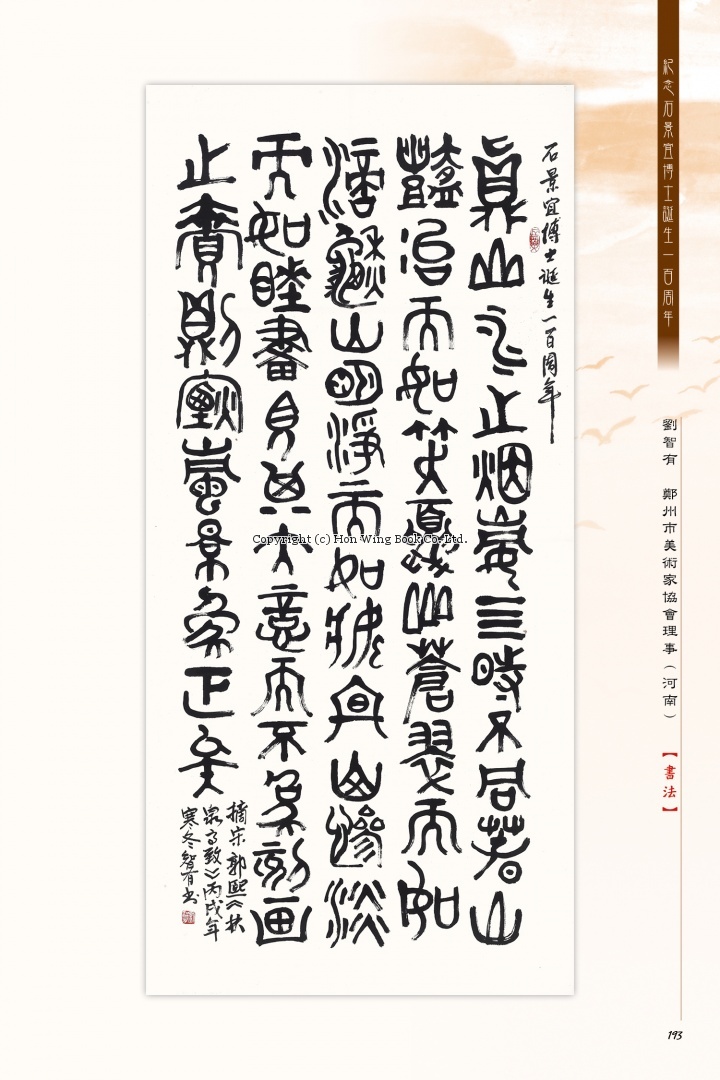 紀念石景宜博士誕生一百周年
石景宜博士诞生一百周年
真山之烟嵐四時不同春山
冶而如笑夏山蒼翠而如
滴秋山明淨而如妝冬山慘淡
而如睡畫見其大意而不為刻画
之迹則嵐景象正矣
摘宋郭熙《林
泉高致》丙戌年
寒冬智有书
劉智有 鄭州市美術家協會理事（河南）【書法】
Copyright (c) Hon Wing Book Co.,Ltd.
193